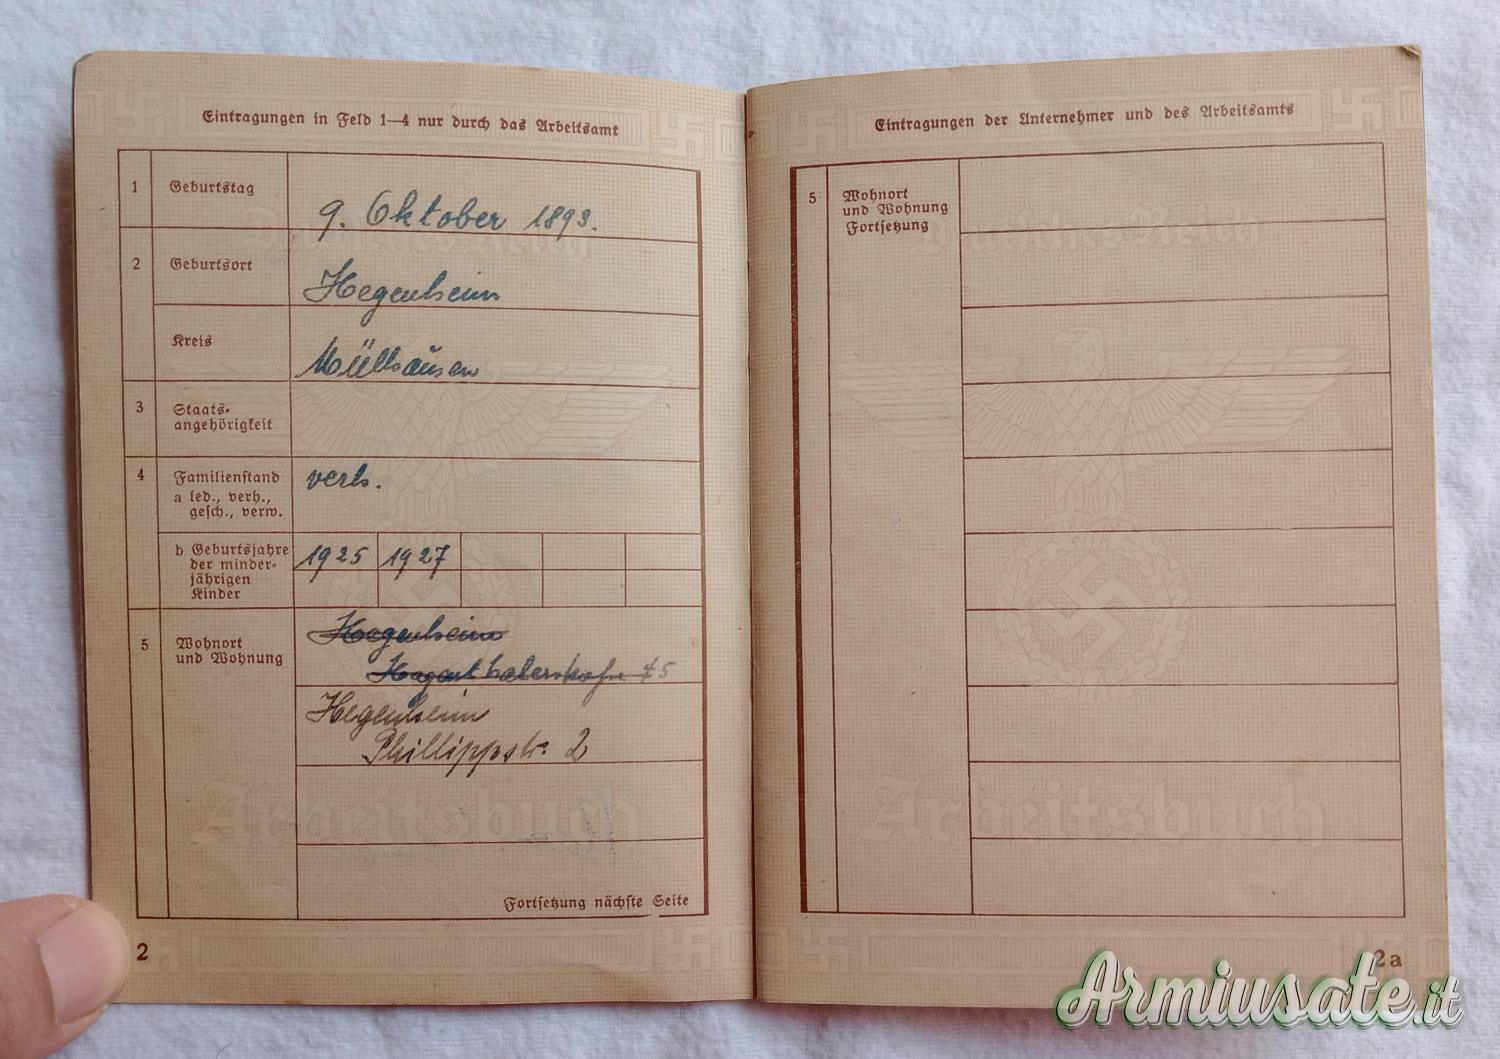 Eintragungen in Feld 1—4 nur durch das Arbeitsamt
1 Geburtstag 9. Oktober 1893.
2 Geburtsort Hegenheim
Kreis Mülhausen
3 Staats-
angehörigkeit
4 Familienstand verh.
a led., verh.,
gesch., verw.
b Geburtsjahre 1925 1927
der minder-
jährigen
Kinder
5 Wohnort
und Wohnung
Hegenheim
45
Hegenheim
Phillippstr. 2
Arbeitsbuch
Fortsetzung nächste Seite
2
Eintragungen der Unternehmer und des Arbeitsamts
5 Wohnort
und Wohnung
Fortsetzung
Deutsches Reich
Arbeitsbuch
2a
Armiusate.it